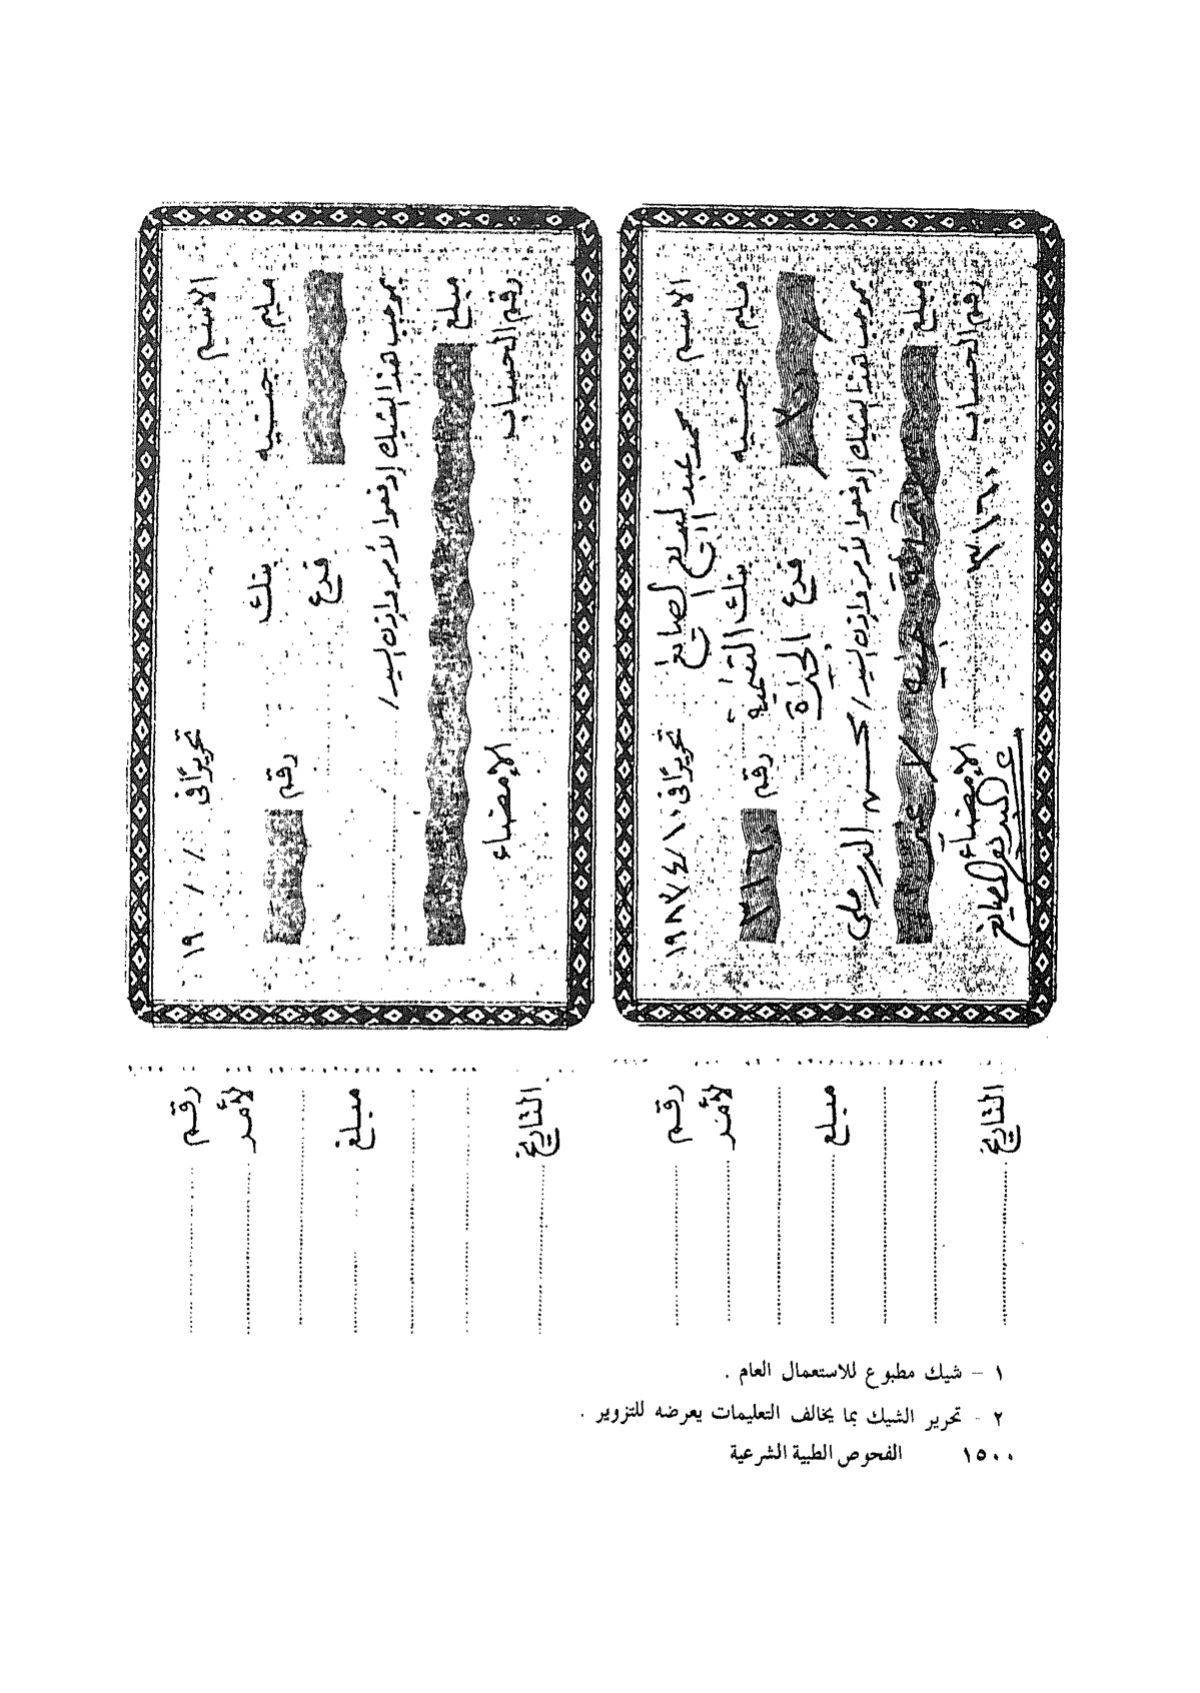 الاسم
تحريرًا في / / ١٩
مليم جنيه
بنك
رقم
فرع
بموجب هذا الشيك إدفعوا لأمر وإذن السيد/
مبلغ
رقم الحساب
الإمضاء
رقم
لأمر
مبلغ
التاريخ
الاسم محمد عبد السميع الصايغ
تحريرًا في ١٩٨٣/٤/١٠
مليم جنيه
بنك التنمية
رقم ٣١٦٠
فرع الجيزة
بموجب هذا الشيك إدفعوا لأمر وإذن السيد/ محسن الدرملى
مبلغ جنيه لا غير
رقم الحساب ٣١٦٠
الإمضاء
رقم
لأمر
مبلغ
التاريخ
١ – شيك مطبوع للاستعمال العام .
٢ - تحرير الشيك بما يخالف التعليمات يعرضه للتزوير .
١٥٠٠ الفحوص الطبية الشرعية